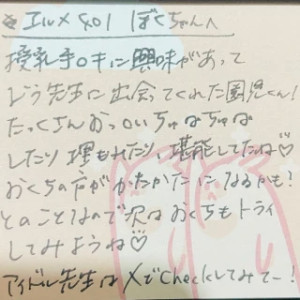 エルメ401 ぼくちゃんへ
授乳手〇キに興味があって
どう先生に出会ってくれた園児くん!
たっくさんおっ〇いちゅぱちゅぱ
したり埋もれたり、堪能してたね♡
おくちの戸がかたかたになるかも?
とのことなので次はおくちもトライ
してみようね♡
アイドル先生はXでCheckしてみてー!